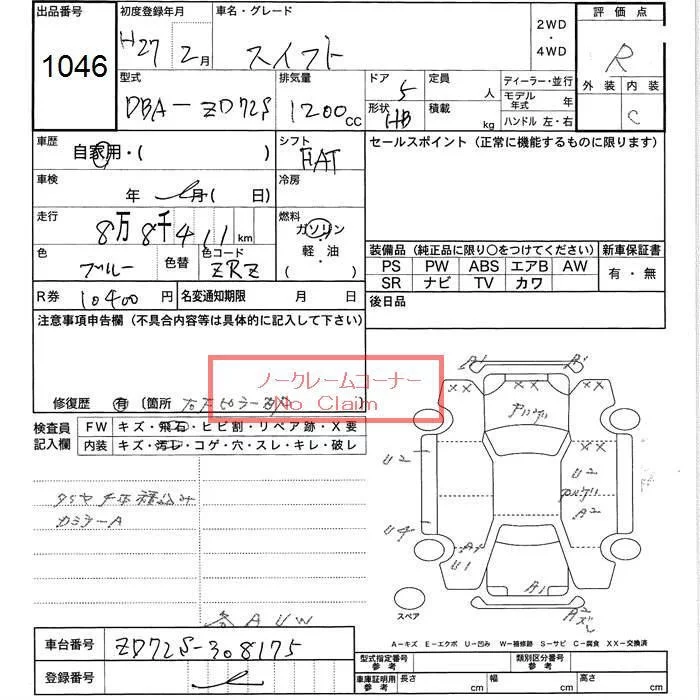 出品番号 初度登録年月 車名・グレード 2WD・4WD 評価点
1046 H27 2月 スイフト R
型式 排気量 ドア 定員 ディーラー・並行 外装 内装
DBA-ZD72S 1200CC 5 人 モデル年式 年 C
形状 HB 積載 kg ハンドル 左・右
車歴 自家用・( ) シフト FAT セールスポイント(正常に機能するものに限ります)
車検 年 月( 日) 冷房
走行 8万8千411km 燃料 ガソリン・軽・油( )
色 ブルー 色替 色コード ZRZ
装備品(純正品に限り○をつけてください) 新車保証書
PS PW ABS エアB AW 有・無
SR ナビ TV カワ
R券 10400円 名変通知期限 月 日 後日品
注意事項申告欄(不具合内容等は具体的に記入して下さい)
ノークレームコーナー
No Claim
修復歴 有 〔箇所
検査員記入欄 FW キズ・飛石・ヒビ割・リペア跡・X要
内装 キズ・汚レ・コゲ・穴・スレ・キレ・破レ
カミラーA
A U W
A1
XX XX
XX
U2 U2
A2
U4
U1
A1
A2
スペア
A-キズ E-エクボ U-凹み W-補修跡 S-サビ C-腐食 XX-交換済
車台番号 ZD72S-308175
登録番号
型式指定番号 参考 類別区分番号 参考
車庫証明用 参考 長さ cm 幅 cm 高さ cm